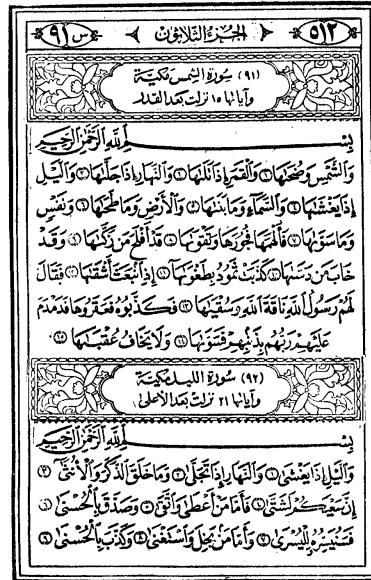 ٥١٢ الجزء الثلاثون س ٩١
(٩١) سورة الشمس مكية
وآياتها ١٥ نزلت بعد القدر
بِسْمِ اللَّهِ الرَّحْمَٰنِ الرَّحِيمِ
وَالشَّمْسِ وَضُحَىٰهَا ١ وَالْقَمَرِ إِذَا تَلَىٰهَا ٢ وَالنَّهَارِ إِذَا جَلَّىٰهَا ٣ وَالَّيْلِ
إِذَا يَغْشَىٰهَا ٤ وَالسَّمَاءِ وَمَا بَنَىٰهَا ٥ وَالْأَرْضِ وَمَا طَحَىٰهَا ٦ وَنَفْسٍ
وَمَا سَوَّىٰهَا ٧ فَأَلْهَمَهَا فُجُورَهَا وَتَقْوَىٰهَا ٨ قَدْ أَفْلَحَ مَن زَكَّىٰهَا ٩ وَقَدْ
خَابَ مَن دَسَّىٰهَا ١٠ كَذَّبَتْ ثَمُودُ بِطَغْوَىٰهَا ١١ إِذِ انبَعَثَ أَشْقَىٰهَا ١٢ فَقَالَ
لَهُمْ رَسُولُ اللَّهِ نَاقَةَ اللَّهِ وَسُقْيَٰهَا ١٣ فَكَذَّبُوهُ فَعَقَرُوهَا فَدَمْدَمَ
عَلَيْهِمْ رَبُّهُم بِذَنبِهِمْ فَسَوَّىٰهَا ١٤ وَلَا يَخَافُ عُقْبَٰهَا ١٥
(٩٢) سورة الليل مكية
وآياتها ٢١ نزلت بعد الأعلى
بِسْمِ اللَّهِ الرَّحْمَٰنِ الرَّحِيمِ
وَالَّيْلِ إِذَا يَغْشَىٰ ١ وَالنَّهَارِ إِذَا تَجَلَّىٰ ٢ وَمَا خَلَقَ الذَّكَرَ وَالْأُنثَىٰ ٣
إِنَّ سَعْيَكُمْ لَشَتَّىٰ ٤ فَأَمَّا مَنْ أَعْطَىٰ وَاتَّقَىٰ ٥ وَصَدَّقَ بِالْحُسْنَىٰ ٦
فَسَنُيَسِّرُهُ لِلْيُسْرَىٰ ٧ وَأَمَّا مَن بَخِلَ وَاسْتَغْنَىٰ ٨ وَكَذَّبَ بِالْحُسْنَىٰ ٩